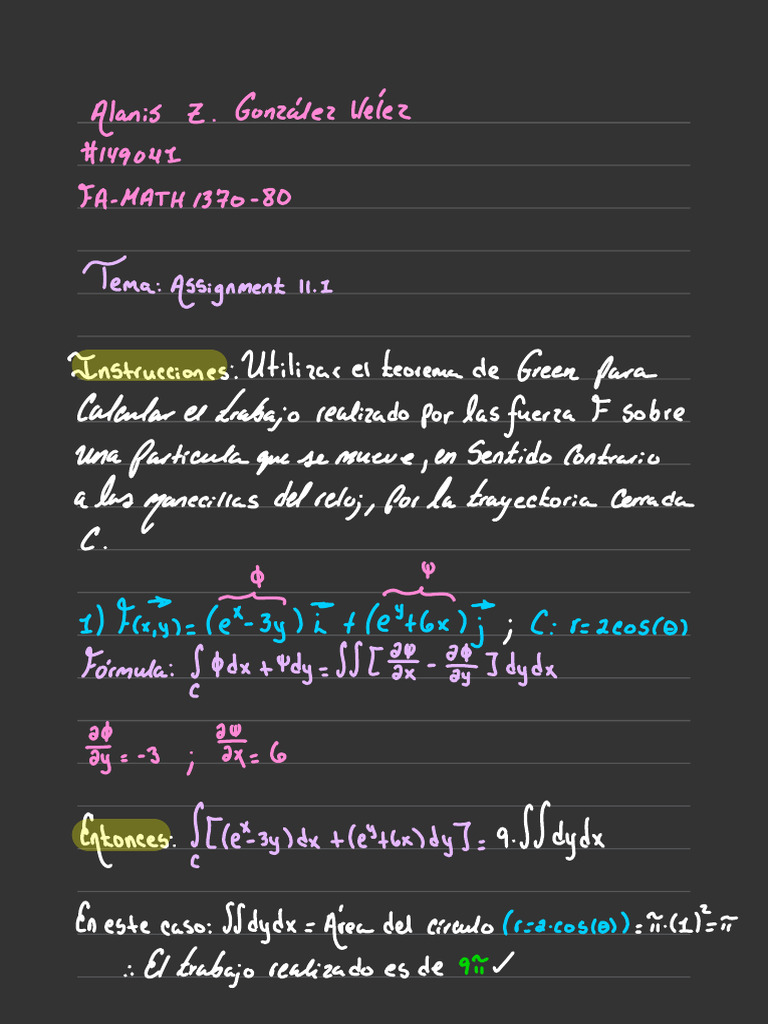 Alanis Z. González Vélez
#149041
FA-MATH 1370-80
Tema: Assignment 11.1
Instrucciones: Utilizar el teorema de Green para
Calcular el trabajo realizado por las fuerza F sobre
una Particula que se mueve, en Sentido Contrario
a las manecillas del reloj, por la trayectoria Cerrada
C.
ϕ ψ
1) F(x,y) = (e^x - 3y) i + (e^y + 6x) j ; C: r = 2cos(θ)
Fórmula: ∫_C ϕdx + ψdy = ∫∫ [∂ψ/∂x - ∂ϕ/∂y] dydx
∂ϕ/∂y = -3 ; ∂ψ/∂x = 6
Entonces: ∫_C [(e^x - 3y)dx + (e^y + 6x)dy] = 9·∫∫dydx
En este caso: ∫∫dydx = Área del círculo (r = 2·cos(θ)) = π·(1)² = π
∴ El trabajo realizado es de 9π ✓